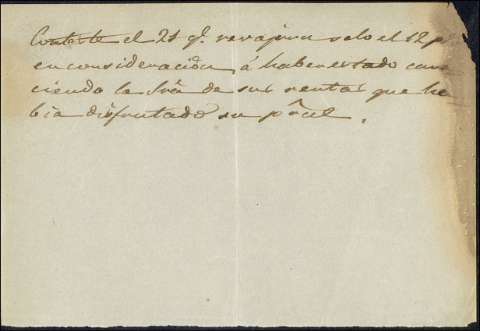 Conteste el 21 q.e revajara solo el 12 p
en consideracion á haber estado care
ciendo la Sra de sus rentas que ha
bia disfrutado su